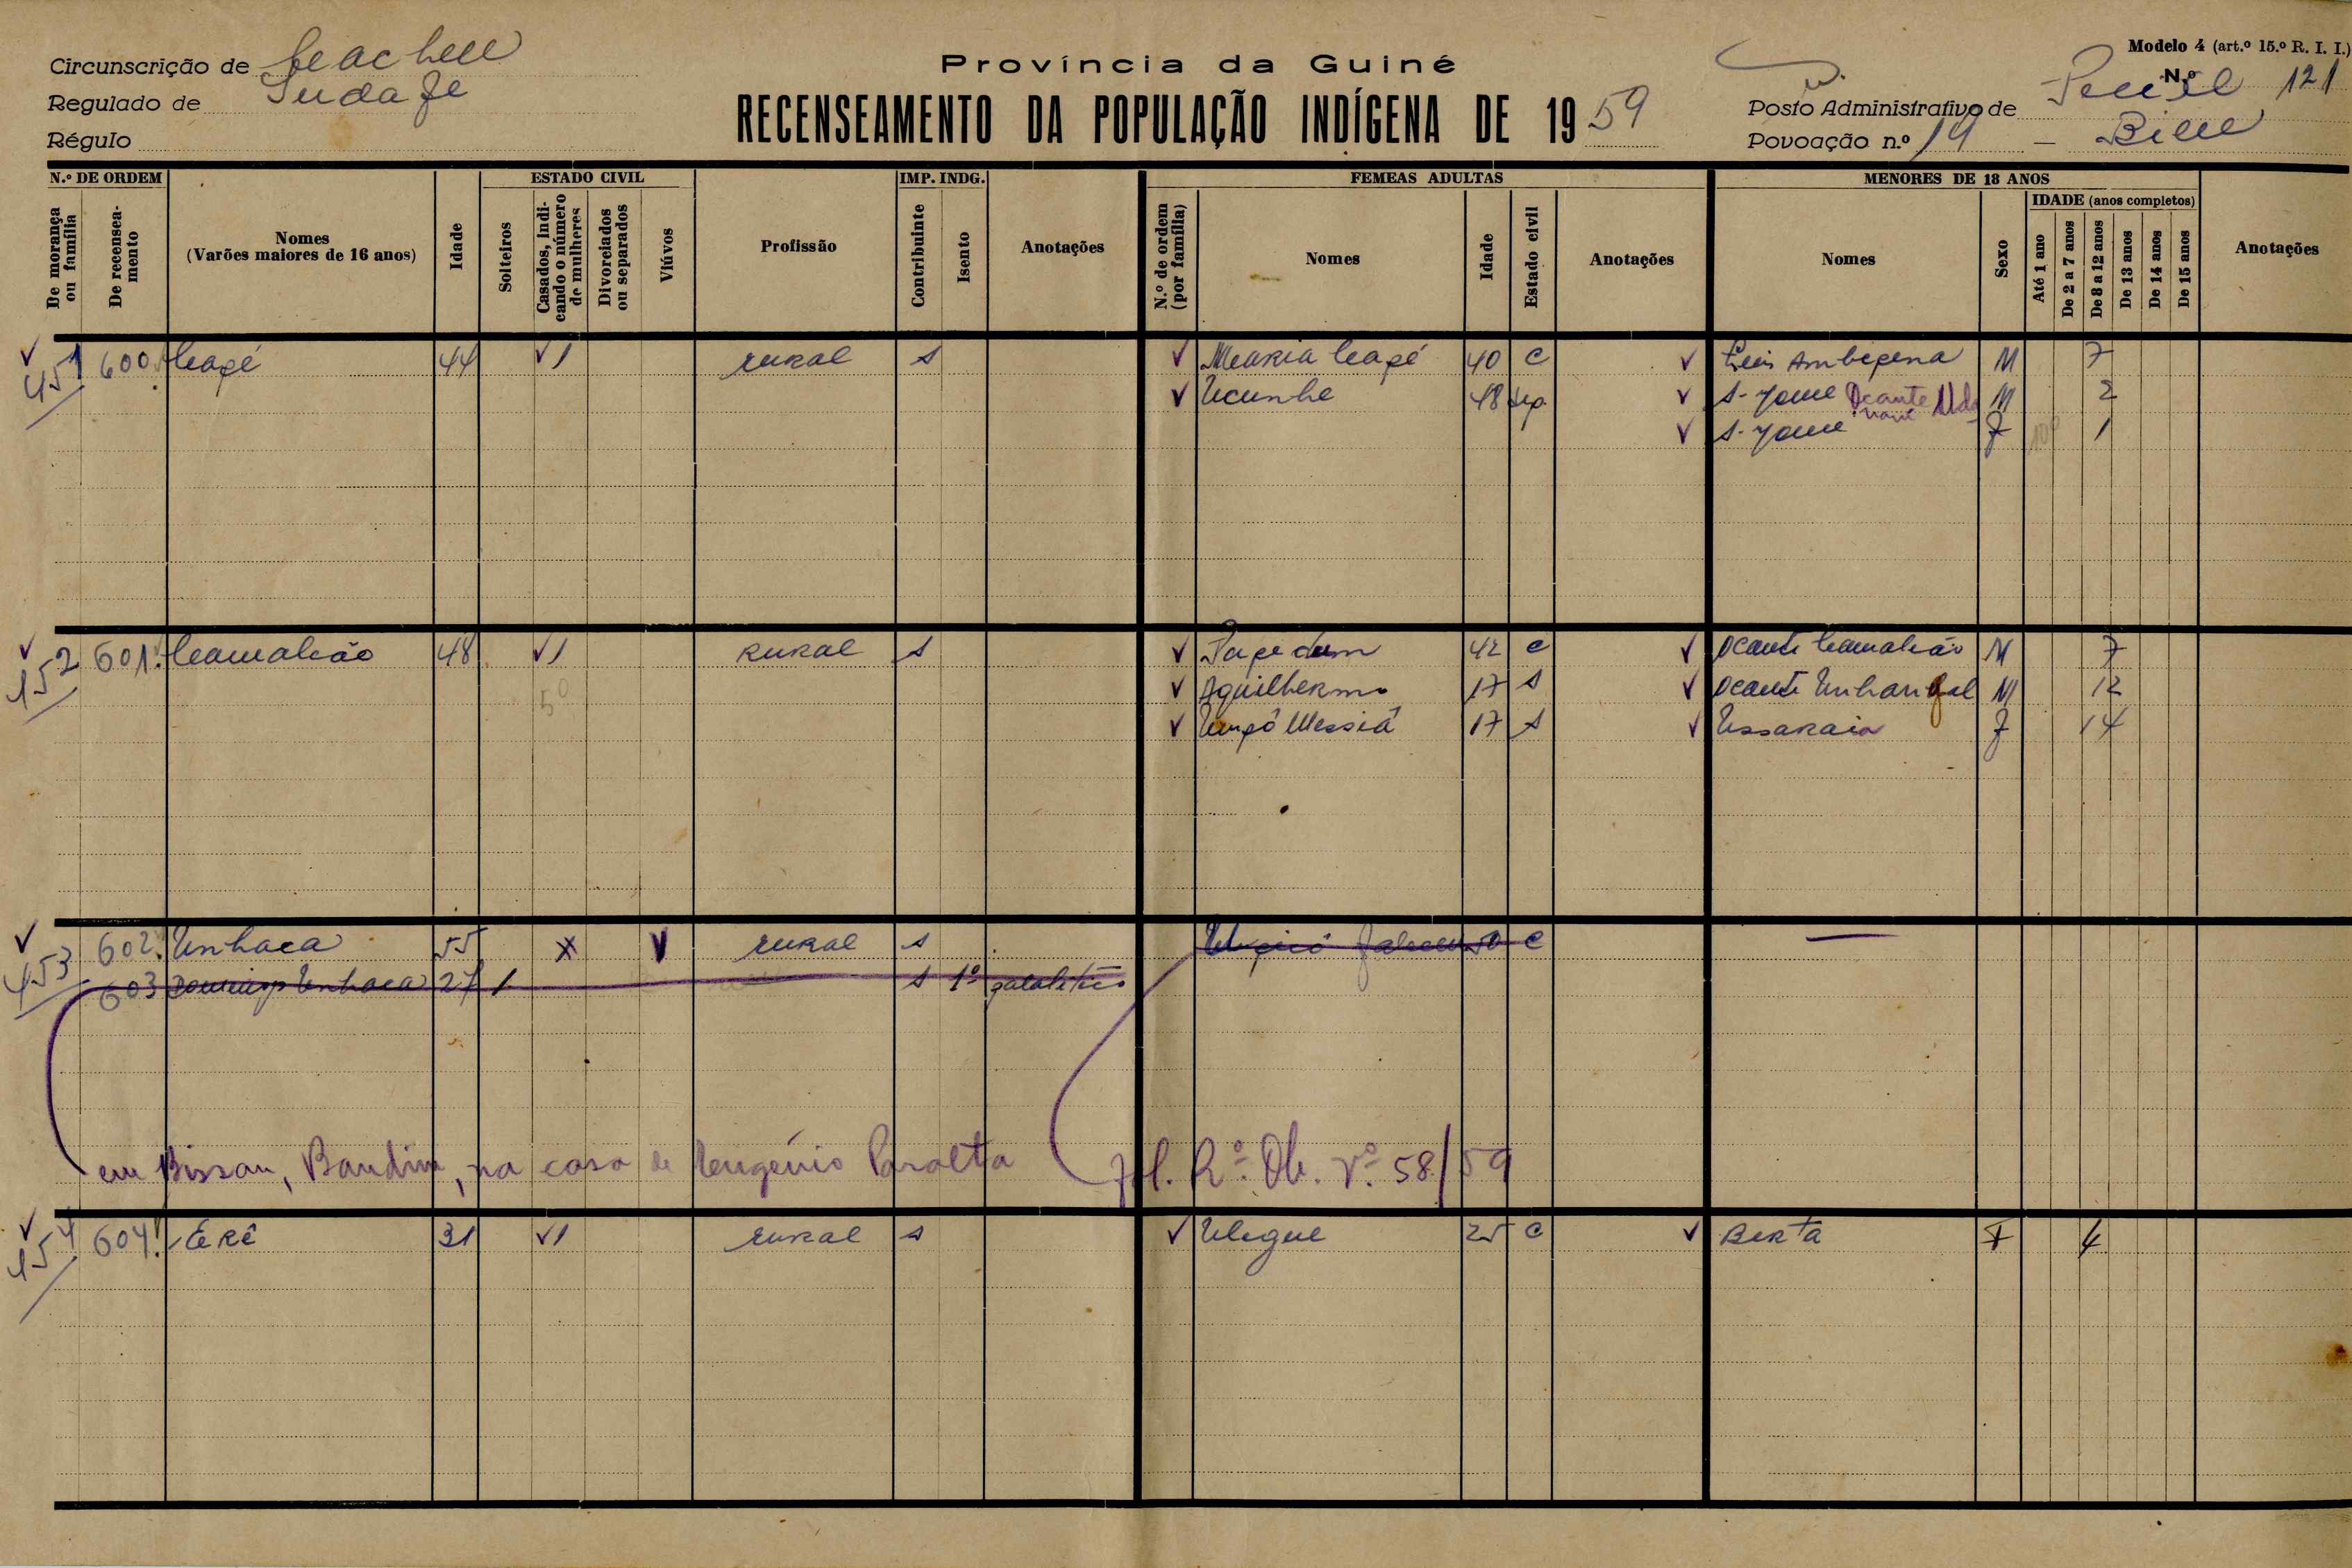 Circunscrição de Cacheu
Regulado de
Régulo
Província da Guiné
RECENSEAMENTO DA POPULAÇÃO INDÍGENA DE 1959
Modelo 4 (art.º 15.º R. I. I.)
N.º 121
Posto Administrativo de
Povoação n.º 14 –
N.º DE ORDEM
De morança ou família
De recenseamento
Nomes
(Varões maiores de 16 anos)
Idade
ESTADO CIVIL
Solteiros
Casados, indicando o número de mulheres
Divorciados ou separados
Viúvos
Profissão
IMP. INDG.
Contribuinte
Isento
Anotações
FEMEAS ADULTAS
N.º de ordem (por família)
Nomes
Idade
Estado civil
Anotações
MENORES DE 18 ANOS
Nomes
Sexo
IDADE (anos completos)
Até 1 ano
De 2 a 7 anos
De 8 a 12 anos
De 13 anos
De 14 anos
De 15 anos
Anotações
451 600 Capé 44 1 rural s Maria Capé 40 c M 7
Ucunhe 48 sep. s-nome Ocante M 2
s-nome F 1
152 601 Camaleão 48 1 rural s 42 c Ocante Camaleão M 7
Aguilhermo 17 s Ocante M 12
17 s Ussaraia F 14
453 602 Unhaca 55 x rural s 50 c —
603 Domingos Unhaca 27 1 s 1º
em Bissau, Bandim, na casa de Eugénio Paralta
58/59
154 604 Erê 31 1 rural s Ulegue 25 c Berta F 4